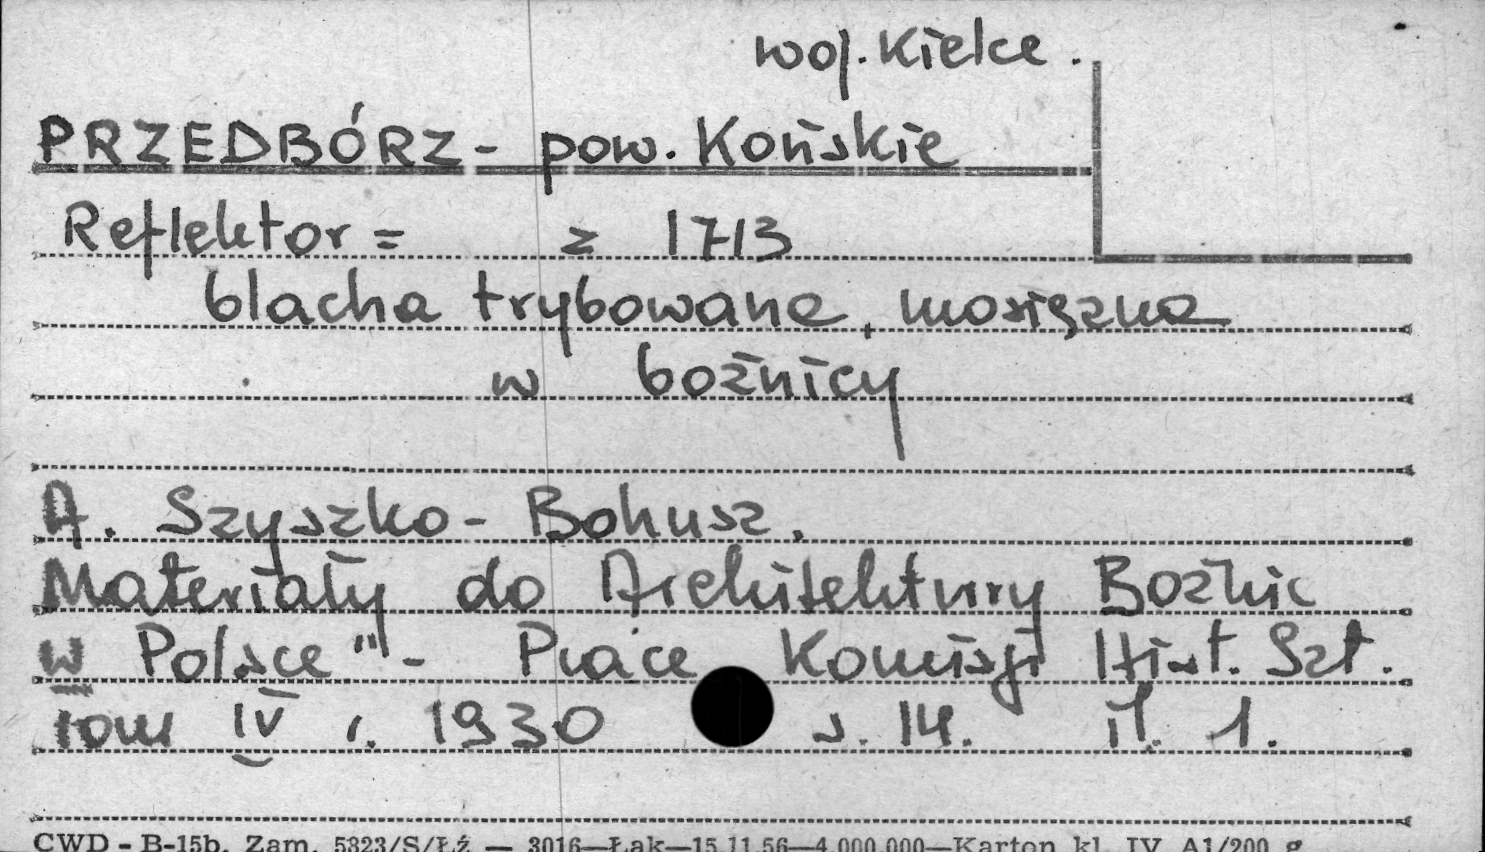 woj. Kielce.
PRZEDBÓRZ - pow. Końskie
Reflektor = z 1713
blacha trybowana, mosiężna
w bożnicy
A. Szyszko-Bohusz.
Materiały do Architektury Bożnic
w Polsce" - Prace Komisji Hist. Szt.
tom IV r. 1930 s. 14. il. 1.
CWD - B-15b. Zam. 5323/S/Łź — 3016—Łak—15.11.56—4.000.000—Karton kl. IV A1/200 g